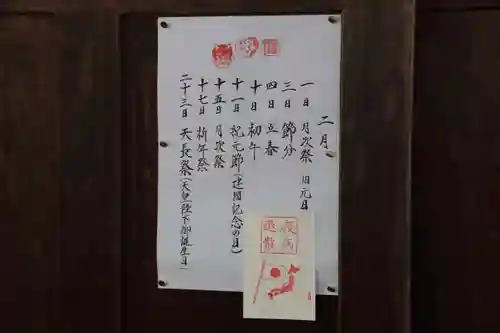 二月
一日 月次祭 旧元日
三日 節分
四日 立春
十日 初午
十一日 紀元節(建国記念の日)
十五日 月次祭
十七日 祈年祭
二十三日 天長祭(天皇陛下御誕生日)
疫病
退散